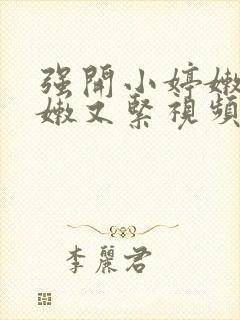 强開小婷嫩
嫩又緊視頻
李麗君